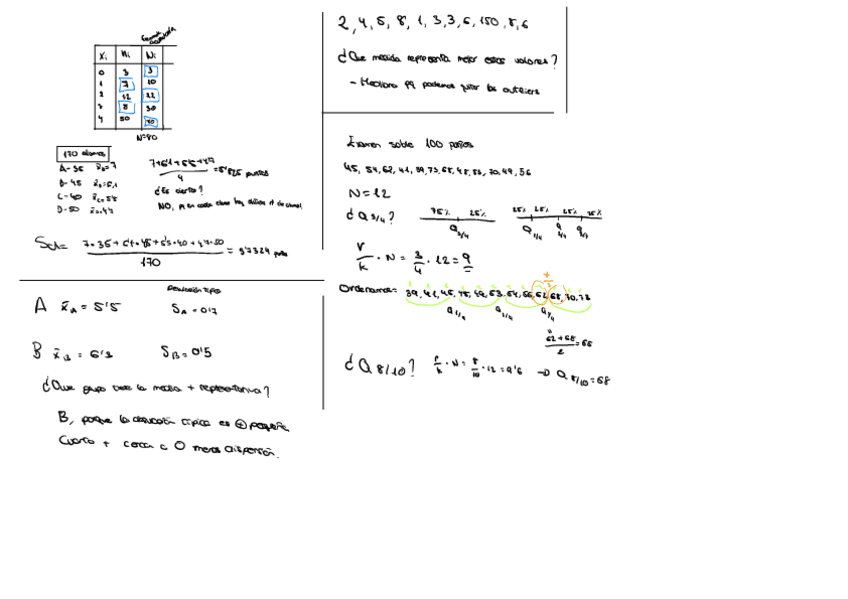 Frecuencia acumulada
Xi ni Ni
0 3 3
1 7 10
2 12 22
3 8 30
4 50 80
N=80
170 alumnos
A-35 x̄A=7
B-45 x̄B=6,1
C-40
D-50
7+6'1+5'5+4'7 / 4 = 5'825 puntos
¿Es cierto?
NO, pq en cada clase hay distinto nº de alumnos.
170
A x̄A = 5'5
Desviación típica
SA = 0'7
B x̄B = 6'3
SB = 0'5
¿Que grupo tiene la media + representativa?
B, porque la desviación típica es ⊕ pequeña.
Cuanto + cerca a 0 menos dispersión.
2, 4, 5, 8, 1, 3, 3, 6, 150, 5, 6
¿Que medida representa mejor estos valores?
- Mediana pq podemos quitar los outliers
Examen sobre 100 puntos
45, 54, 62, 41, 39, 73, 68, 48, 53, 70, 49, 56
N=12
¿Q 3/4?
75% 25%
Q 3/4
25% 25% 25% 25%
Q 1/4
r/k · N = 3/4 · 12 = 9
Ordenamos: 39, 41, 45, 48, 49, 53, 54, 56, 62, 68, 70, 73
Q 1/4 Q 2/4 Q 3/4
¿Q 8/10? r/k · N = 8/10 · 12 = 9'6 → Q 8/10 = 68